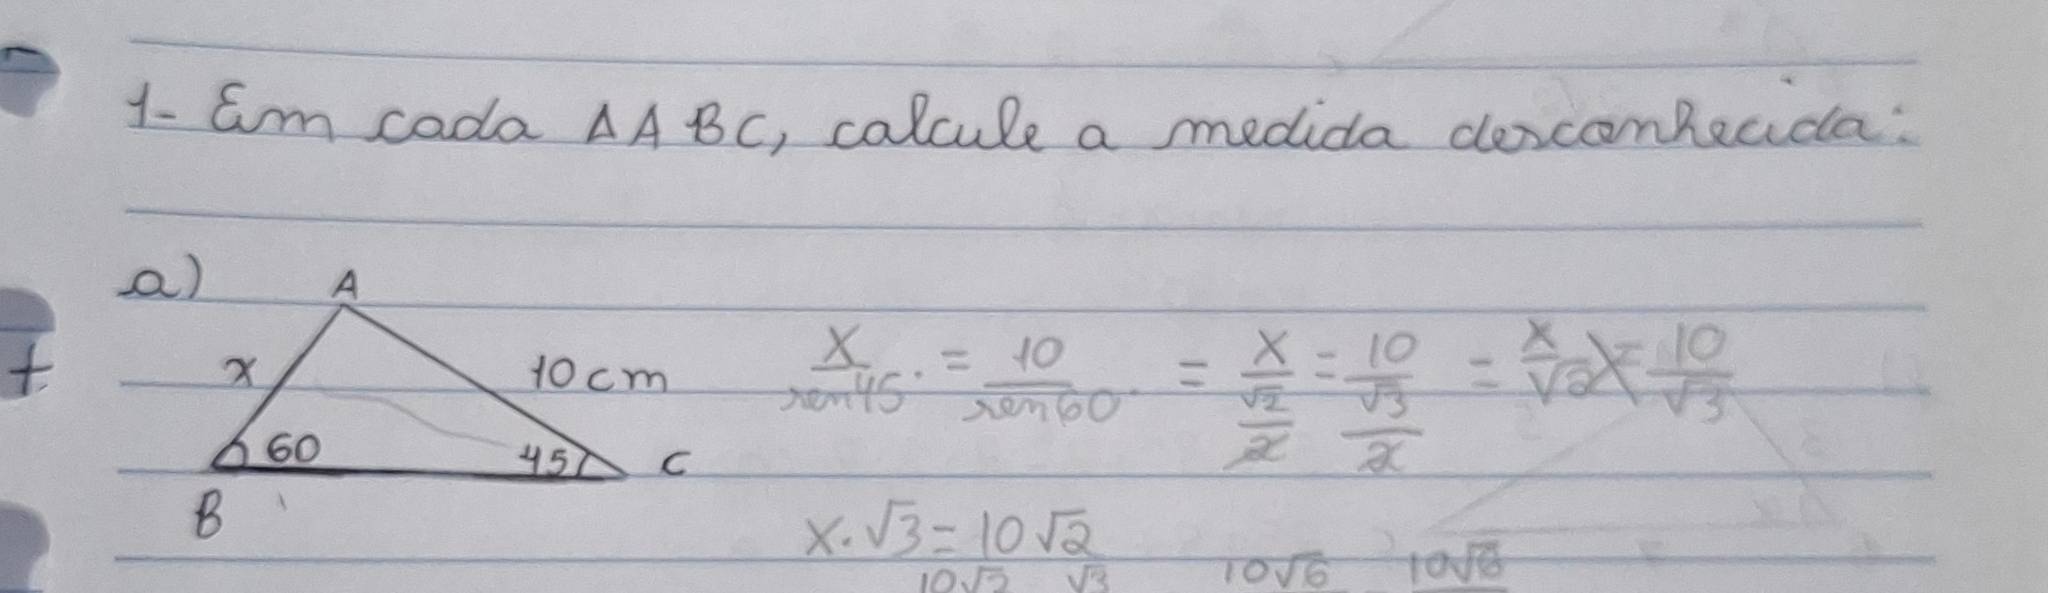 1- Em cada ΔABC, calcule a medida desconhecida:
a)
A
x
10cm
60
45
C
B
x/sen45° = 10/sen60° = x/(√2/2) = 10/(√3/2) = x/√2 = 10/√3
x.√3 = 10√2
10√2 √3 10√6 10√6